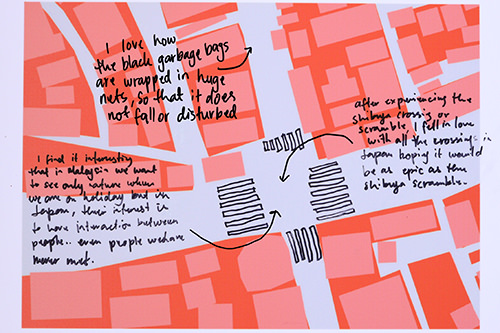 I love how
the black garbage bags
are wrapped in huge
nets, so that it does
not fall or disturbed
after experiencing the
shibuya crossing or
scramble, I fell in love
with all the crossings in
Japan hoping it would
be as epic as the
shibuya scramble.
I find it interesting
that in malaysia we want
to see only nature when
we are on holiday but in
Japan, their interest is
to have interaction between
people.. even people we have
never met.